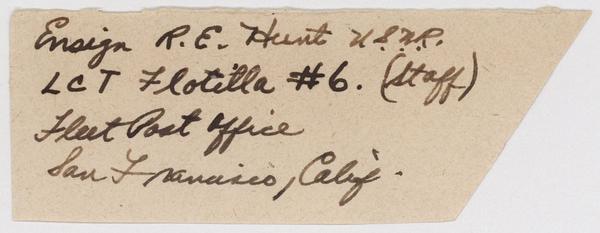 Ensign R.E. Hunt U.S.N.R.
LCT Flotilla #6. (Staff)
Fleet Post Office
San Francisco, Calif.